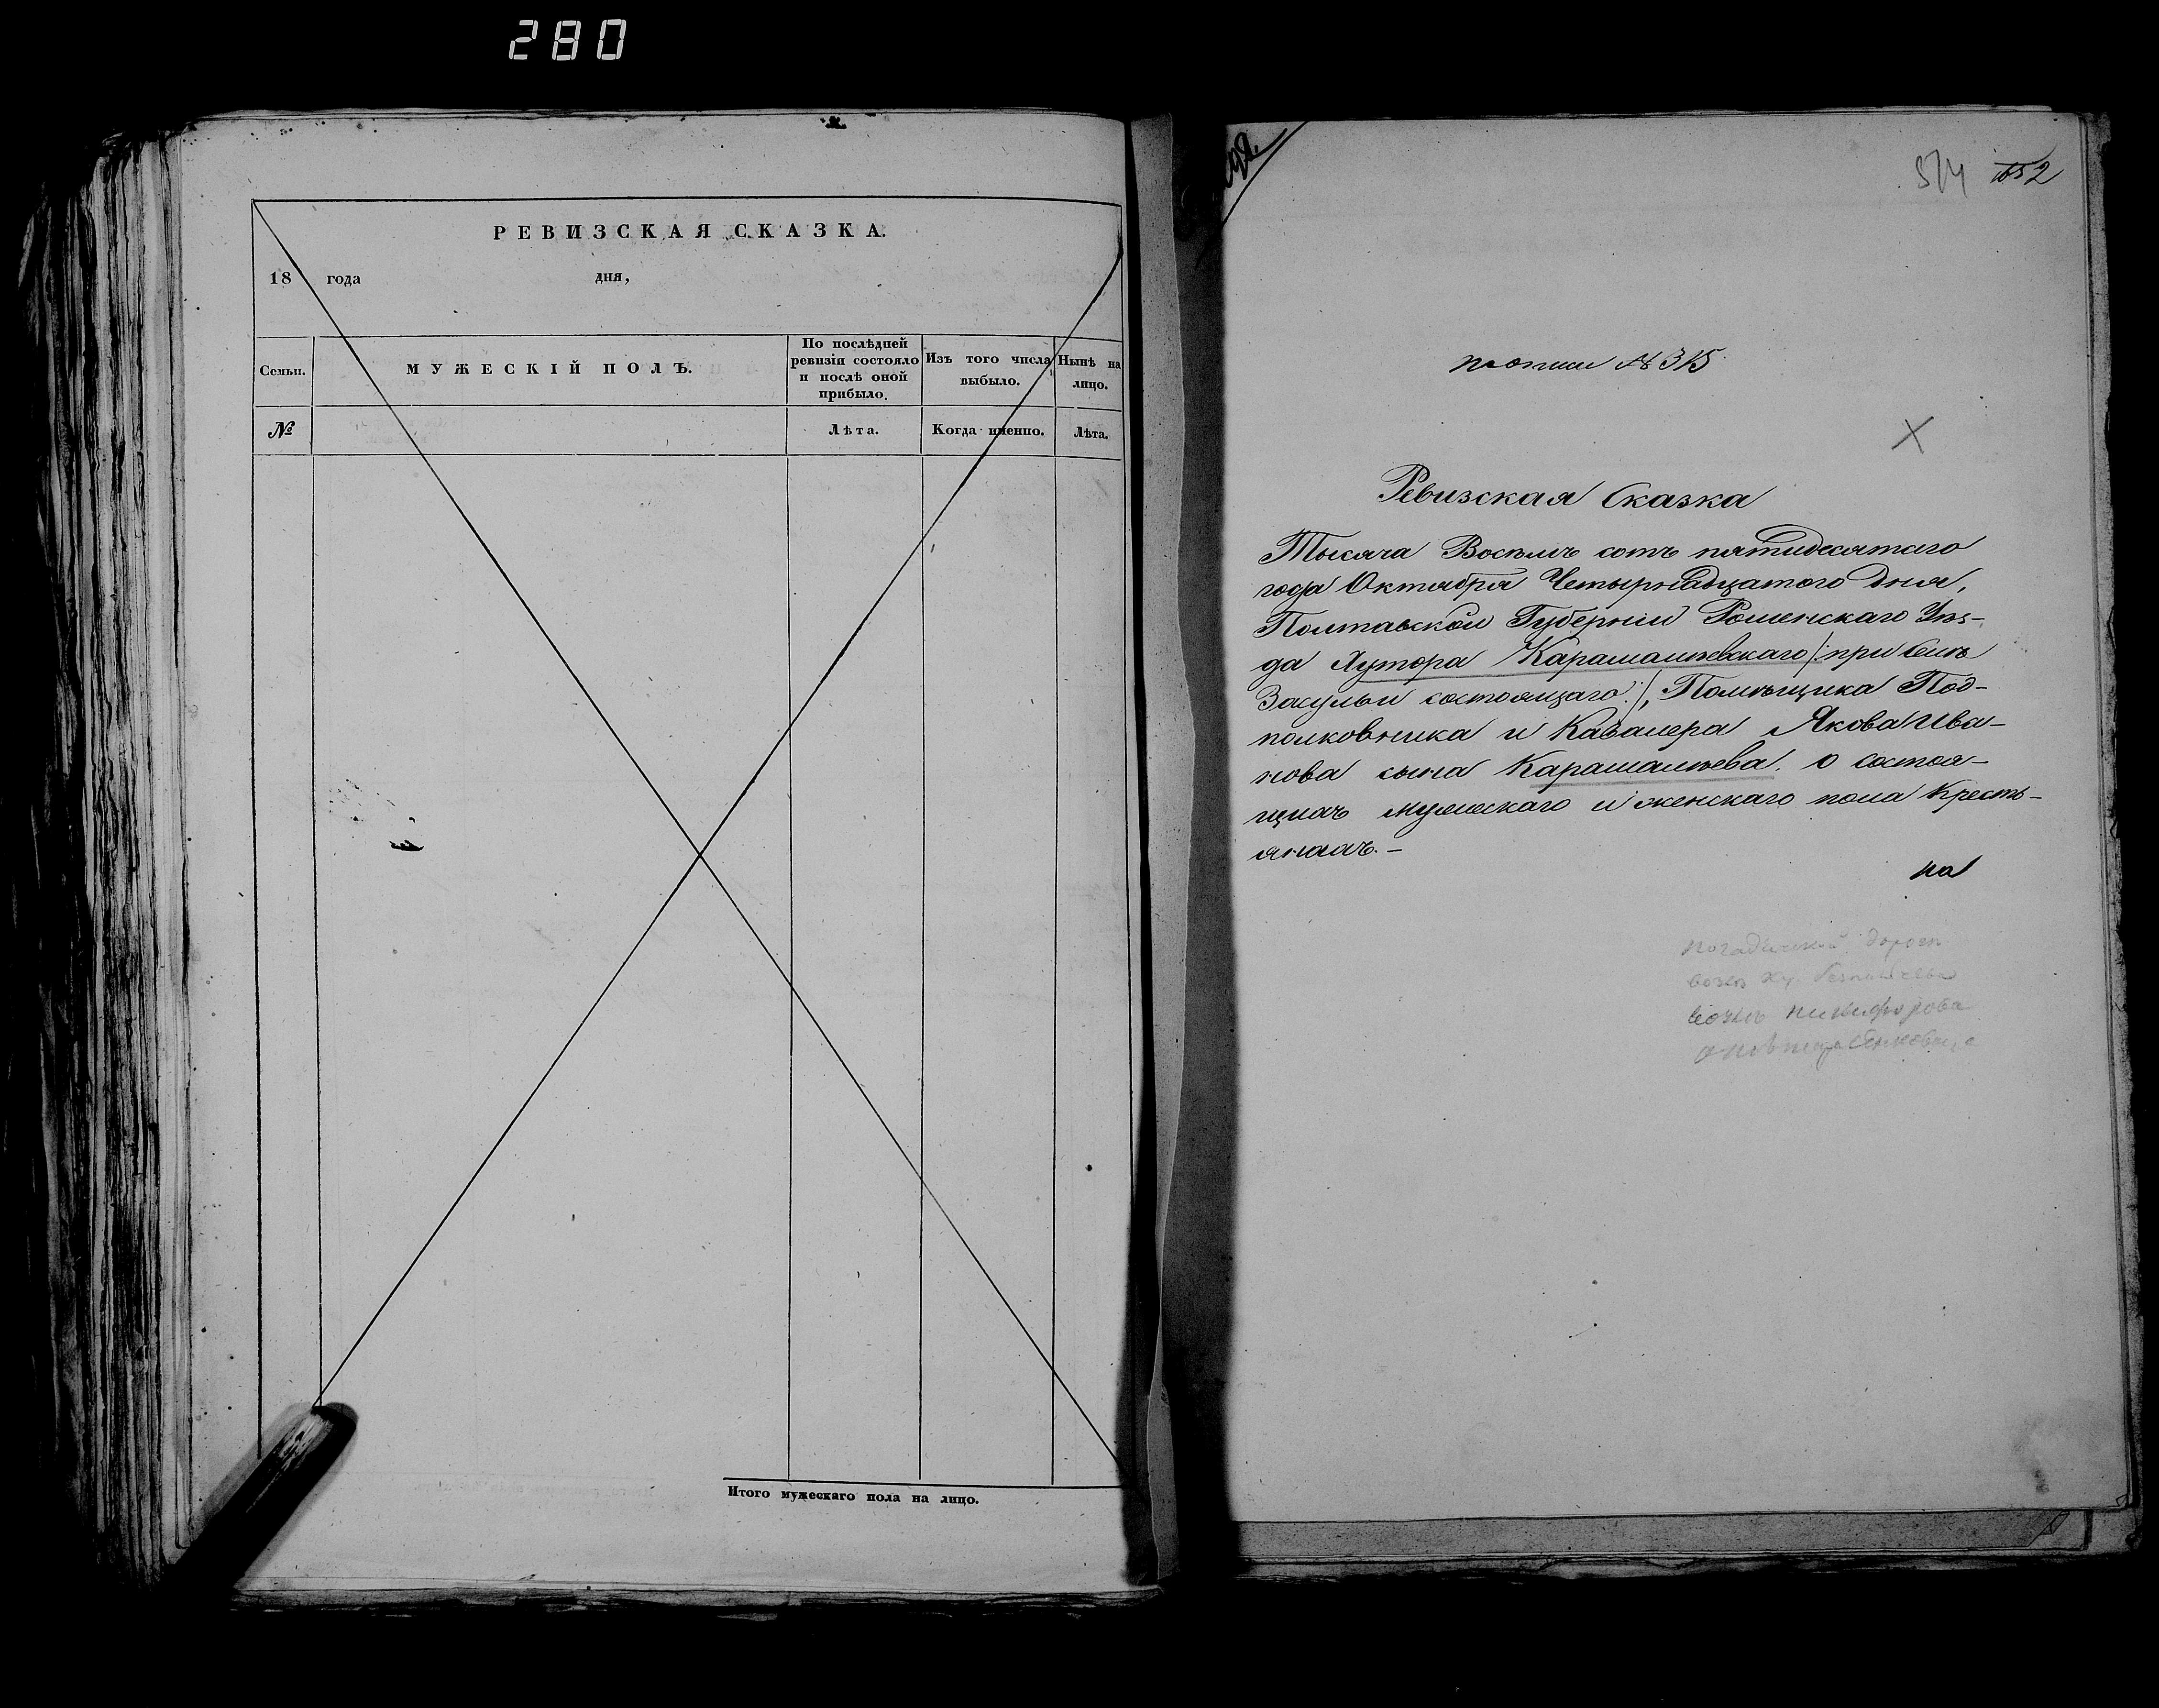 280
РЕВИЗСКАЯ СКАЗКА.
18 года дня,
Семьи.
МУЖЕСКІЙ ПОЛЪ.
По послѣдней
ревизіи состояло
и послѣ оной
прибыло.
Изъ того числа
выбыло.
Нынѣ на
лицо.
№
Лѣта.
Когда именно.
Лѣта.
Итого мужескаго пола на лицо.
574 652
по описи № 315
Ревизская Сказка
Тысяча Восемь сотъ пятидесятаго
года Октября Четырнадцатого дня,
Полтавской Губерніи Роменскаго Уѣз-
да Хутора Карамалѣевскаго /:при селѣ
Засульи состоящаго:/, Помѣщика Под-
полковника и Кавалера Якова Ива-
нова сына Карамалѣева. о состоя-
щихъ мужескаго и женскаго пола Кресть-
янахъ.-
на
дороги
возлѣ ху.
возлѣ Никифорова